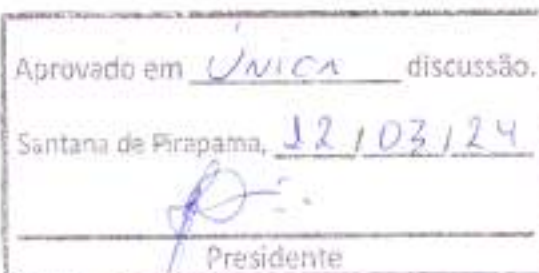 Aprovado em ÚNICA discussão.
Santana de Pirapama, 12/03/24
Presidente